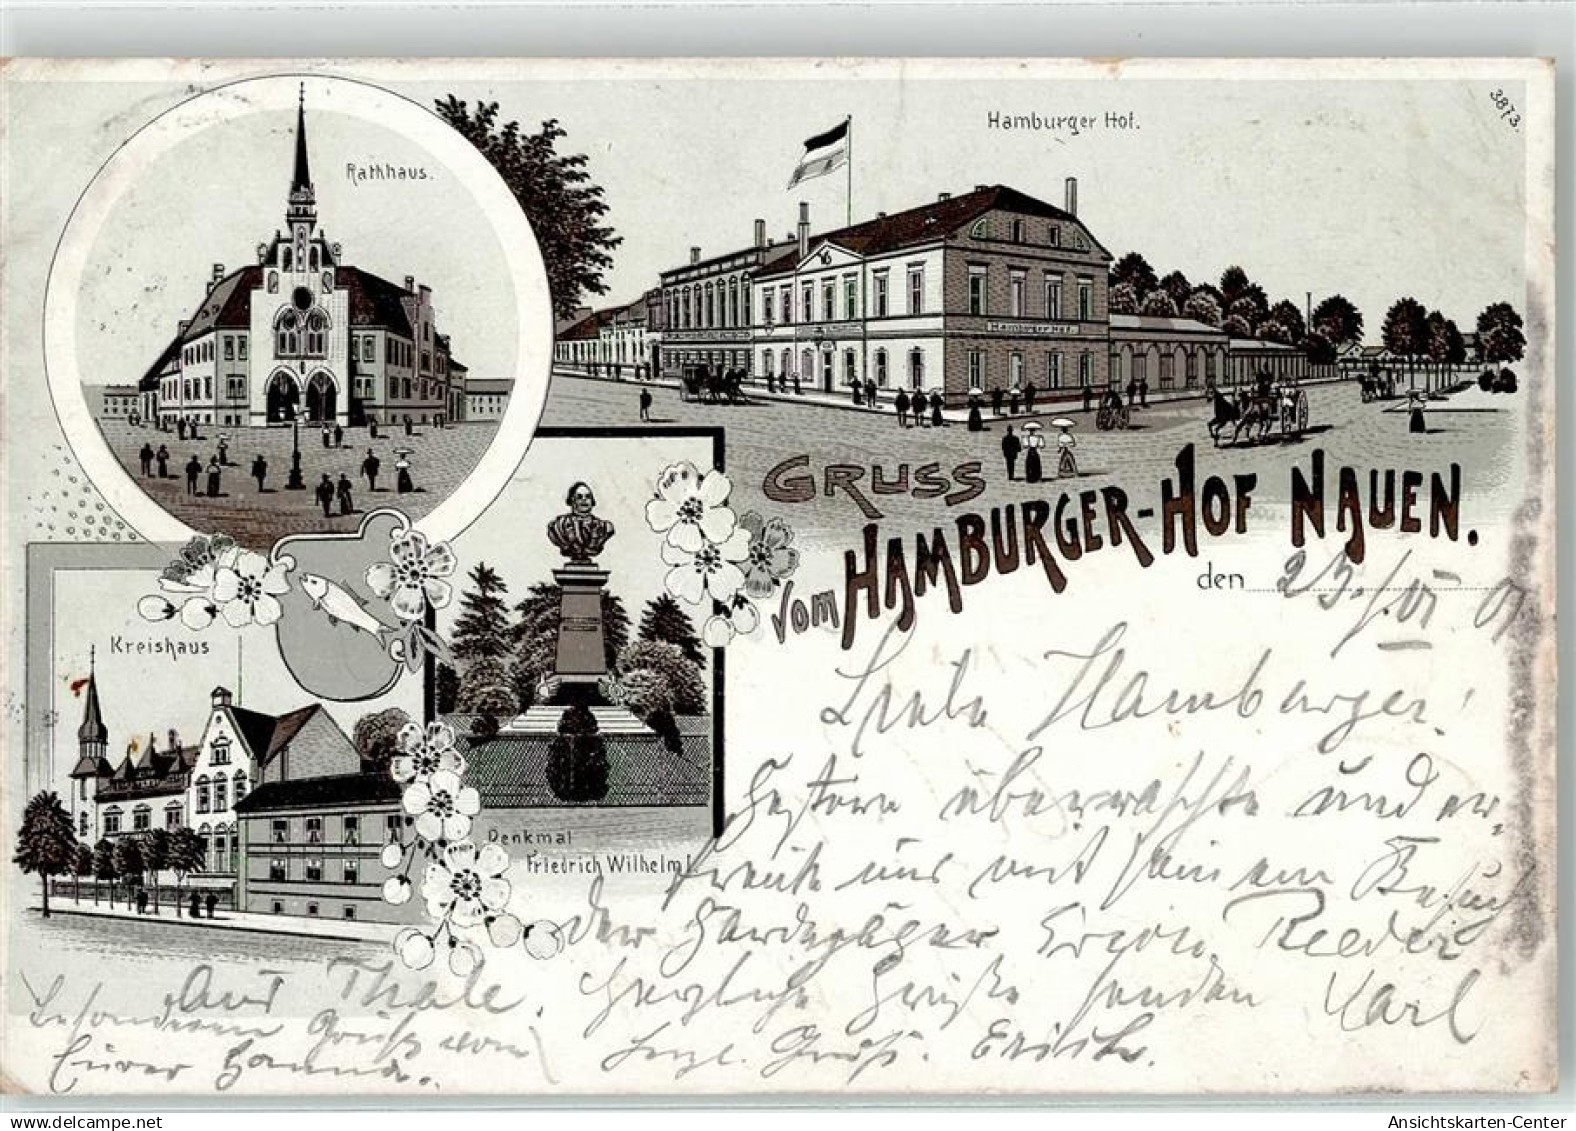 3873.
Hamburger Hof.
Rathhaus.
Hamburger Hof.
GRUSS
vom HAMBURGER-HOF NAUEN.
den 25./VI 01
Kreishaus
Liebe Hamburger!
Gestern überraschte und er-
freute uns mit seinem Besuch
Denkmal
Friedrich Wilhelm I.
der Gardejäger Erwin Reeder
aus Thale. Herzliche Grüße senden Karl
Besonderen Gruß von
Eurer Hanna. Herzl. Gruß.
Ansichtskarten-Center